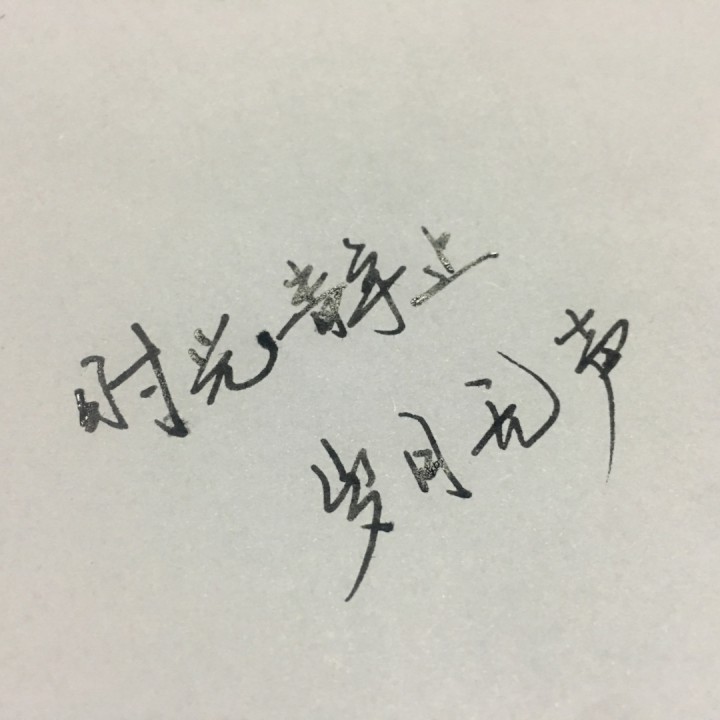 时光静止
岁月无声